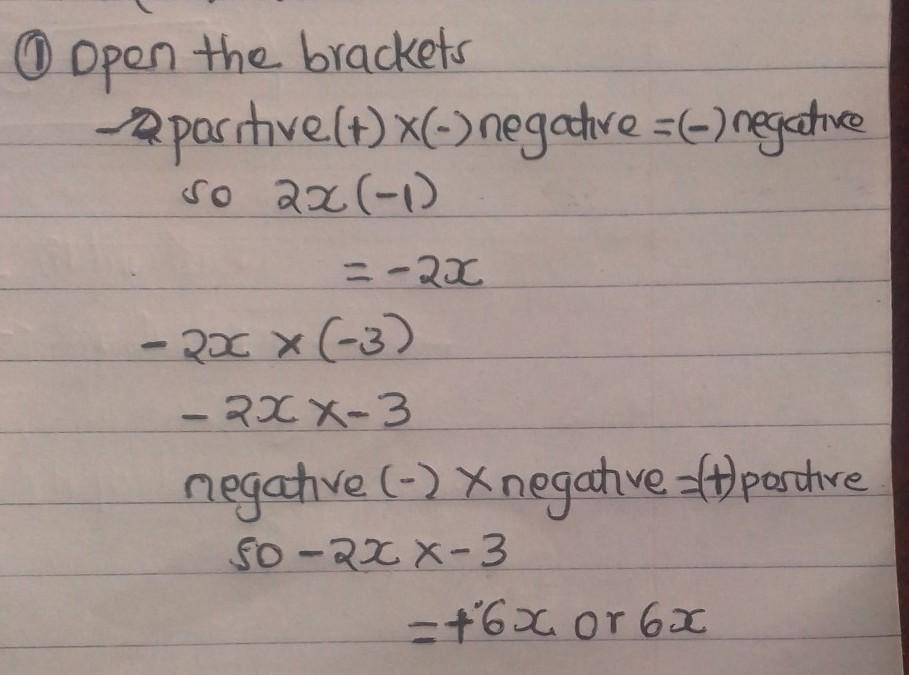 ① Open the brackets
positive(+) ×(-) negative =(-) negative
so 2x (-1)
= -2x
- 2x × (-3)
- 2x × - 3
negative (-) × negative =(+) positive
so - 2x × - 3
= +6x or 6x